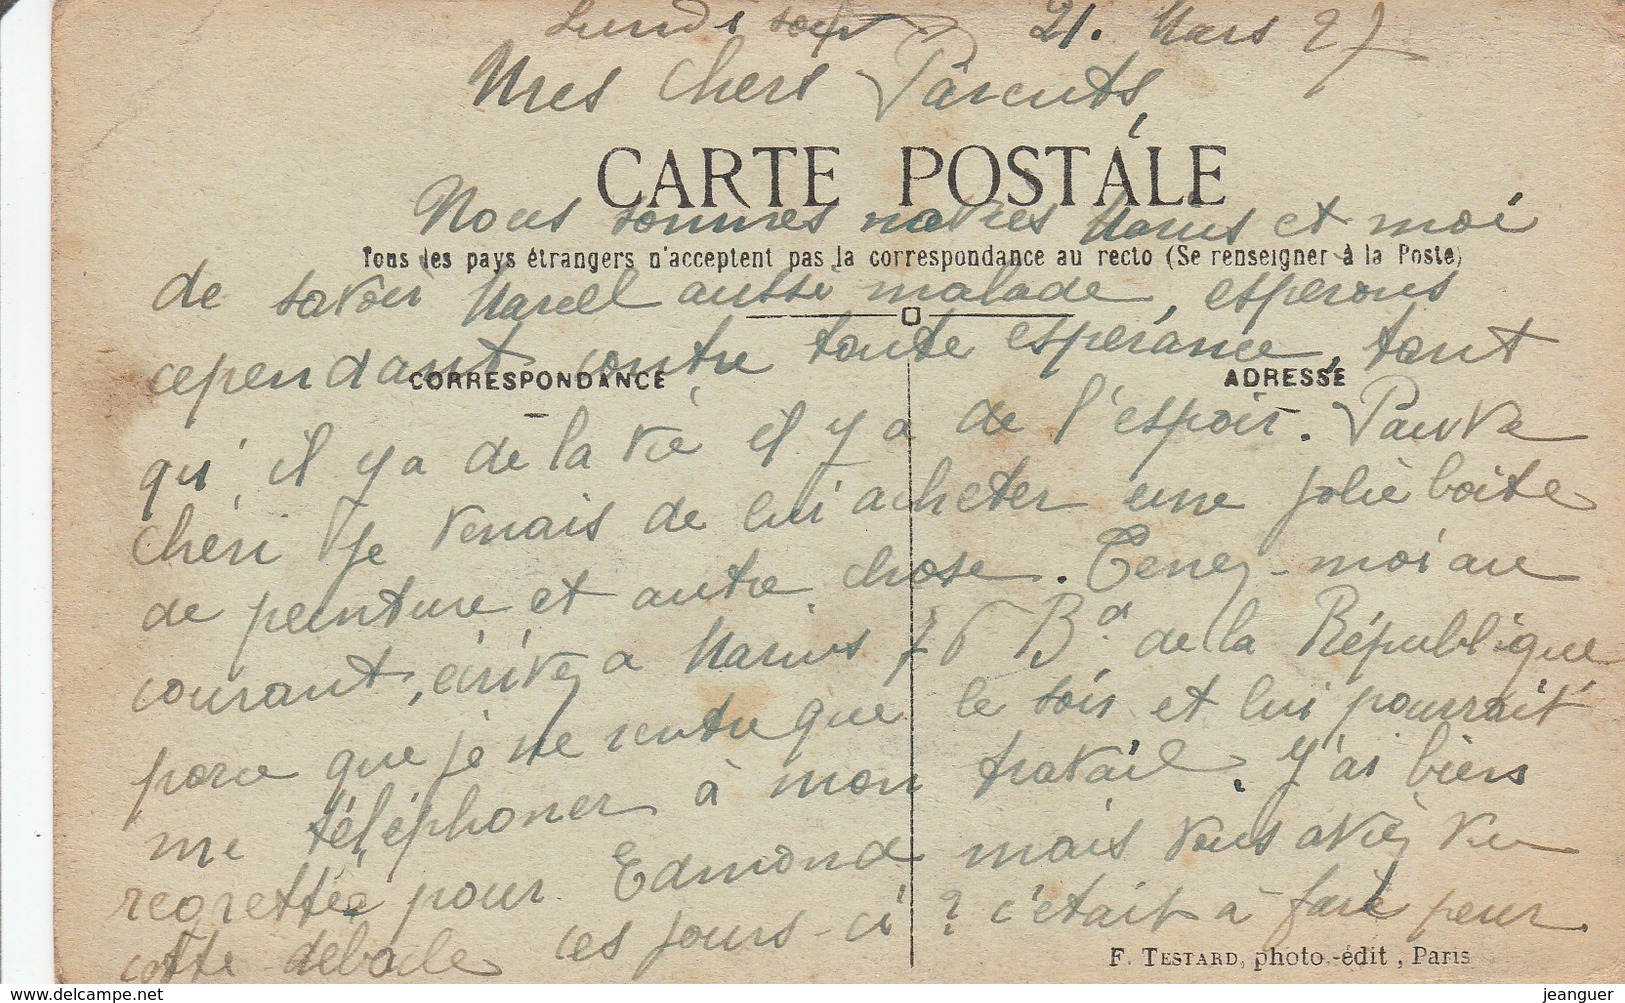 Lundi soir 21. Mars 27
Mes chers Parents,
CARTE POSTALE
Nous sommes navrés Marius et moi
Tous les pays étrangers n'acceptent pas la correspondance au recto (Se renseigner à la Poste)
de savoir Marcel aussi malade, esperons
cependant contre toute espérance, tant
CORRESPONDANCE ADRESSE
qu'il y a de la vie il y a de l'espoir. Pauvre
Chéri Je venais de lui acheter une jolie boîte
de peinture et autre chose. Tenez-moi au
courant, écrivez a Marius 76 Bd de la République
parce que je ne rentre que le soir et lui pourrait
me téléphoner à mon travail. J'ai bien
regrettée pour Edmond mais vous avez vu
cette debacle ces jours-ci ? c'était à faire peur.
F. TESTARD, photo-édit, Paris
www.delcampe.net
jeanguer